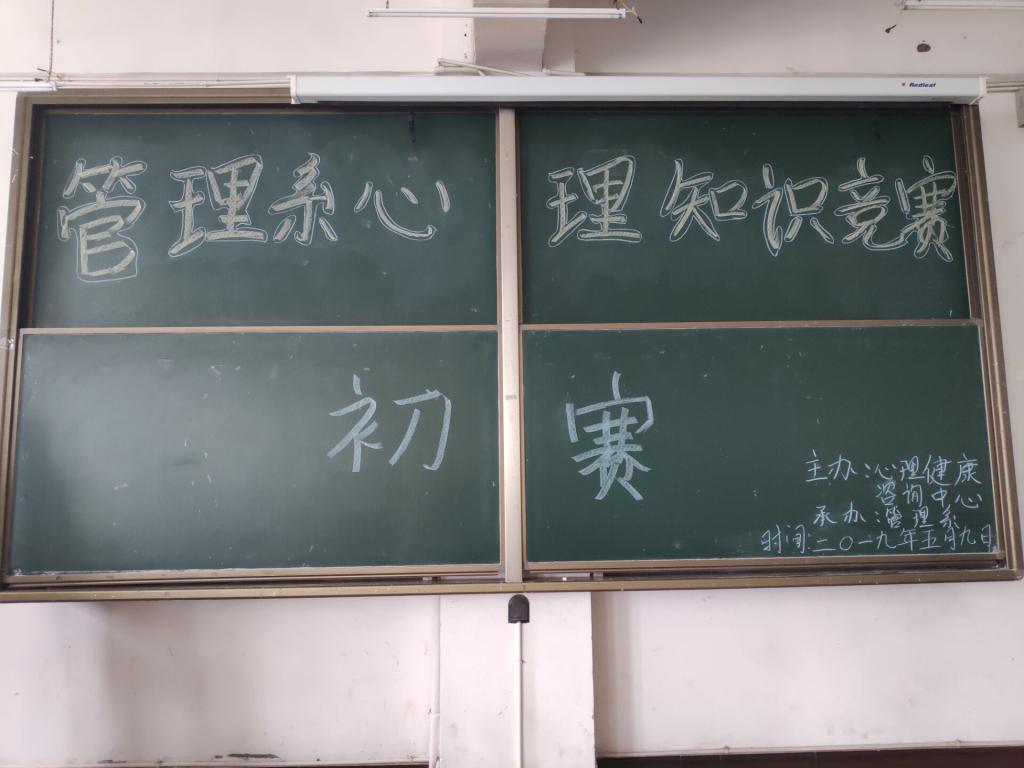 Redleaf
管理系心理知识竞赛
初赛
主办:心理健康
咨询中心
承办:管理系
时间:二〇一九年五月九日